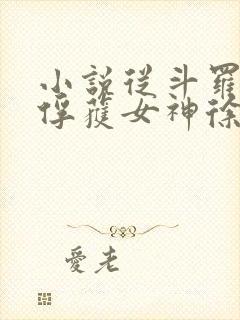 小說從斗羅
俘獲女神徐
愛老